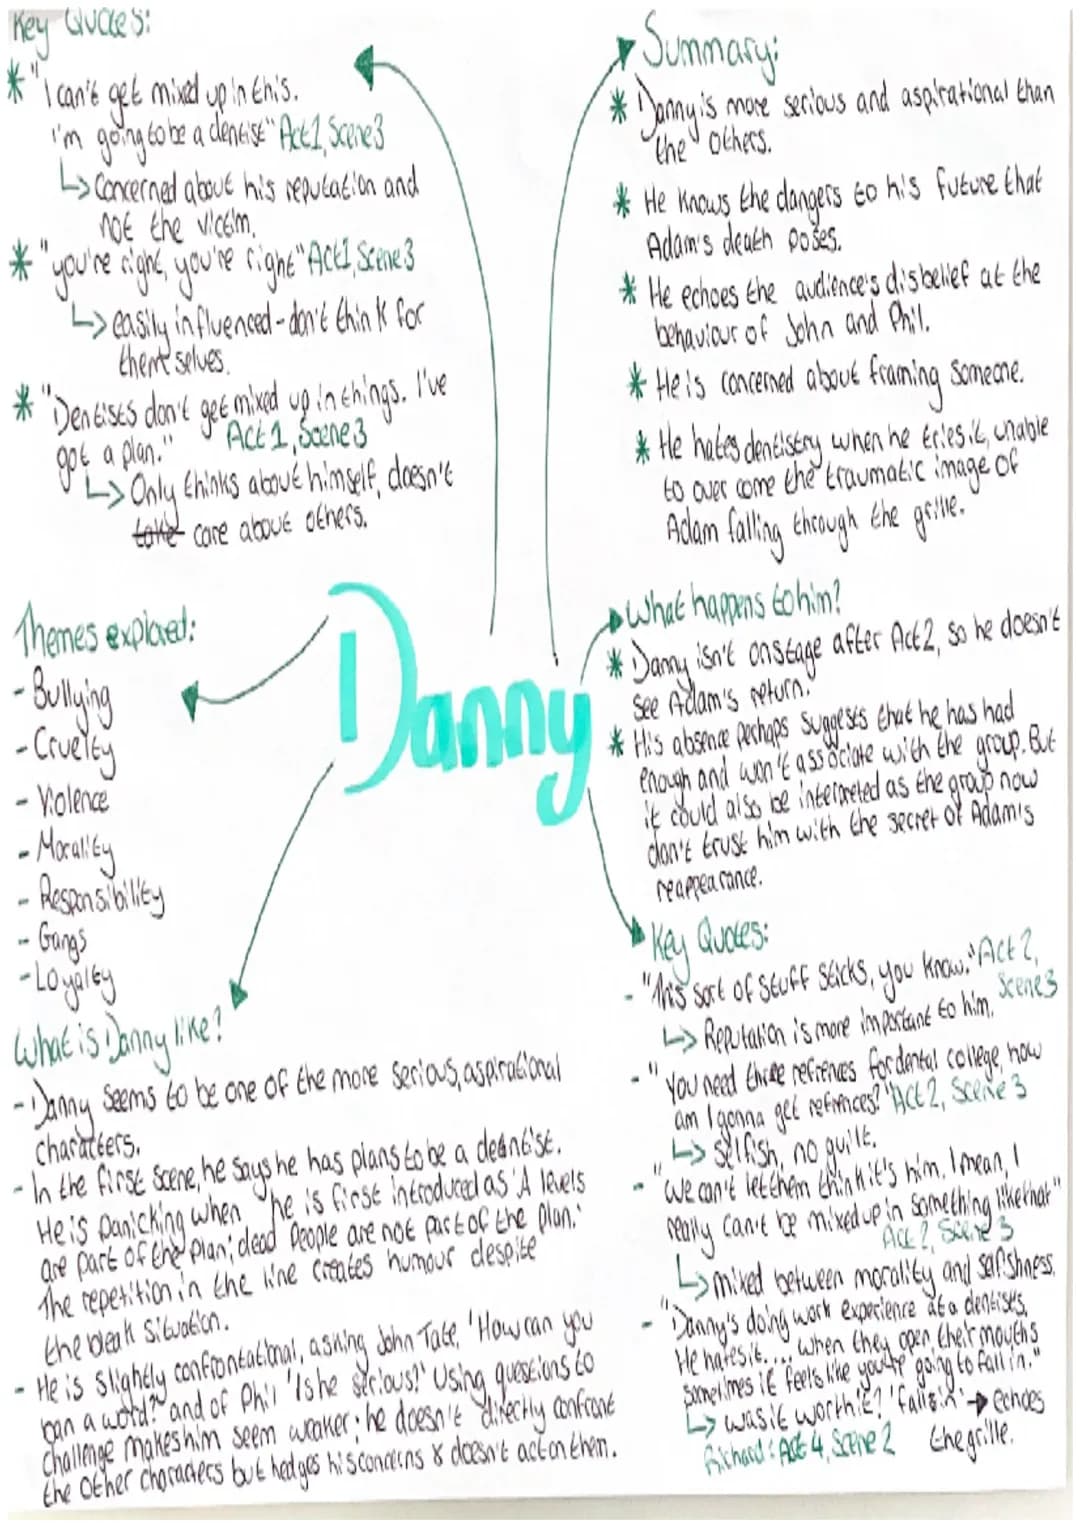 Key Quotes:
* "I can't get mixed up in this.
I'm going to be a dentist" Act1, Scene3
↳ Concerned about his reputation and
not the victim.
* "you're right, you're right" Act1, Scene3
↳ easily influenced - don't think for
themselves.
* "Dentists don't get mixed up in things. I've
got a plan." Act 1, Scene 3
↳ Only thinks about himself, doesn't
take care about others.
Summary:
* Danny is more serious and aspirational than
the others.
* He knows the dangers to his future that
Adam's death poses.
* He echoes the audience's disbelief at the
behaviour of John and Phil.
* He is concerned about framing someone.
* He hates dentistry when he tries it, unable
to over come the traumatic image of
Adam falling through the grille.
Danny
Themes explored:
- Bullying
- Cruelty
- Violence
- Morality
- Responsibility
- Gangs
- Loyalty
What happens to him?
* Danny isn't onstage after Act2, so he doesn't
see Adam's return.
* His absence perhaps suggests that he has had
enough and won't associate with the group. But
it could also be interpreted as the group now
don't trust him with the secret of Adam's
reappearance.
What is Danny like?
- Danny seems to be one of the more serious, aspirational
characters.
- In the first scene, he says he has plans to be a deantist.
He is panicking when he is first introduced as 'A levels
are part of the plan; dead people are not part of the plan.'
The repetition in the line creates humour despite
the bleak situation.
- He is slightly confrontational, asking John Tate, 'How can you
ban a word?' and of Phil 'Is he serious?' Using questions to
challenge makes him seem weaker; he doesn't directly confront
the other characters but hedges his concerns & doesn't act on them.
Key Quotes:
- "This sort of stuff sticks, you know." Act 2,
Scene 3
↳ Reputation is more important to him.
- "You need three refrences for dental college, how
am I gonna get refrences?" Act 2, Scene 3
↳ selfish, no guilt.
- "We can't let them think it's him, I mean, I
really can't be mixed up in something like that"
Act 2, Scene 3
↳ mixed between morality and selfishness.
- "Danny's doing work experience at a dentists,
He hates it.... when they open their mouths
sometimes it feels like you're going to fall in."
↳ was it worth it? 'fall in' → echoes
the grille.
Richard: Act 4, Scene 2